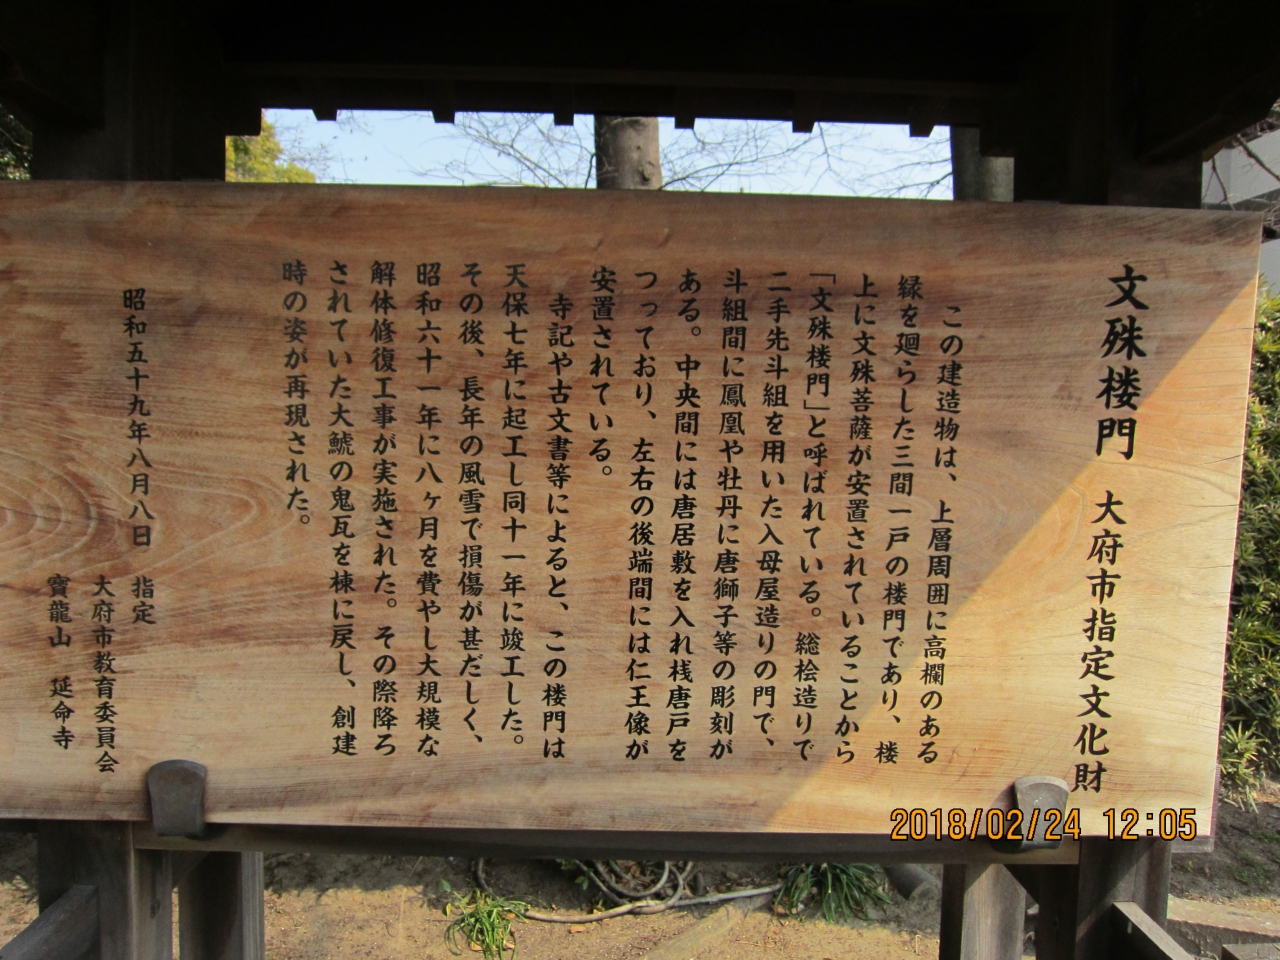 文殊楼門 大府市指定文化財
この建造物は、上層周囲に高欄のある
縁を廻らした三間一戸の楼門であり、楼
上に文殊菩薩が安置されていることから
「文殊楼門」と呼ばれている。総桧造りで
二手先斗組を用いた入母屋造りの門で、
斗組間に鳳凰や牡丹に唐獅子等の彫刻が
ある。中央間には唐居敷を入れ桟唐戸を
つっており、左右の後端間には仁王像が
安置されている。
寺記や古文書等によると、この楼門は
天保七年に起工し同十一年に竣工した。
その後、長年の風雪で損傷が甚だしく、
昭和六十一年に八ヶ月を費やし大規模な
解体修復工事が実施された。その際降ろ
されていた大鯱の鬼瓦を棟に戻し、創建
時の姿が再現された。
昭和五十九年八月八日 指定
大府市教育委員会
寶龍山 延命寺
2018/02/24 12:05